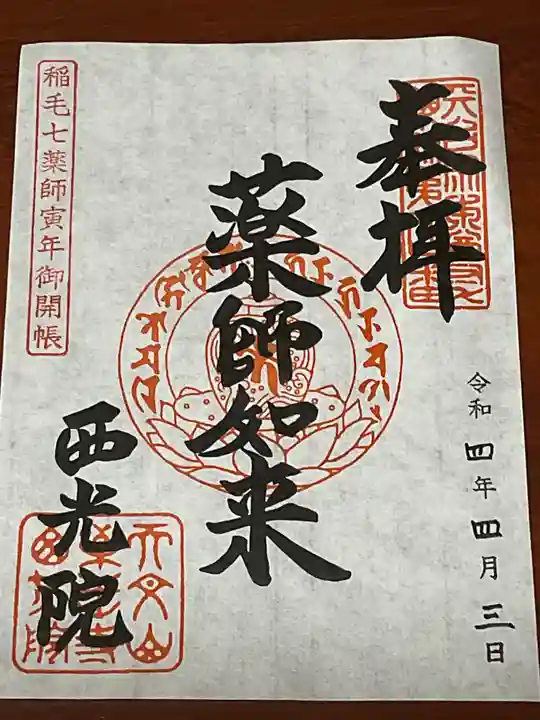 奉拝
令和四年四月三日
薬師如来
稲毛七薬師寅年御開帳
西光院